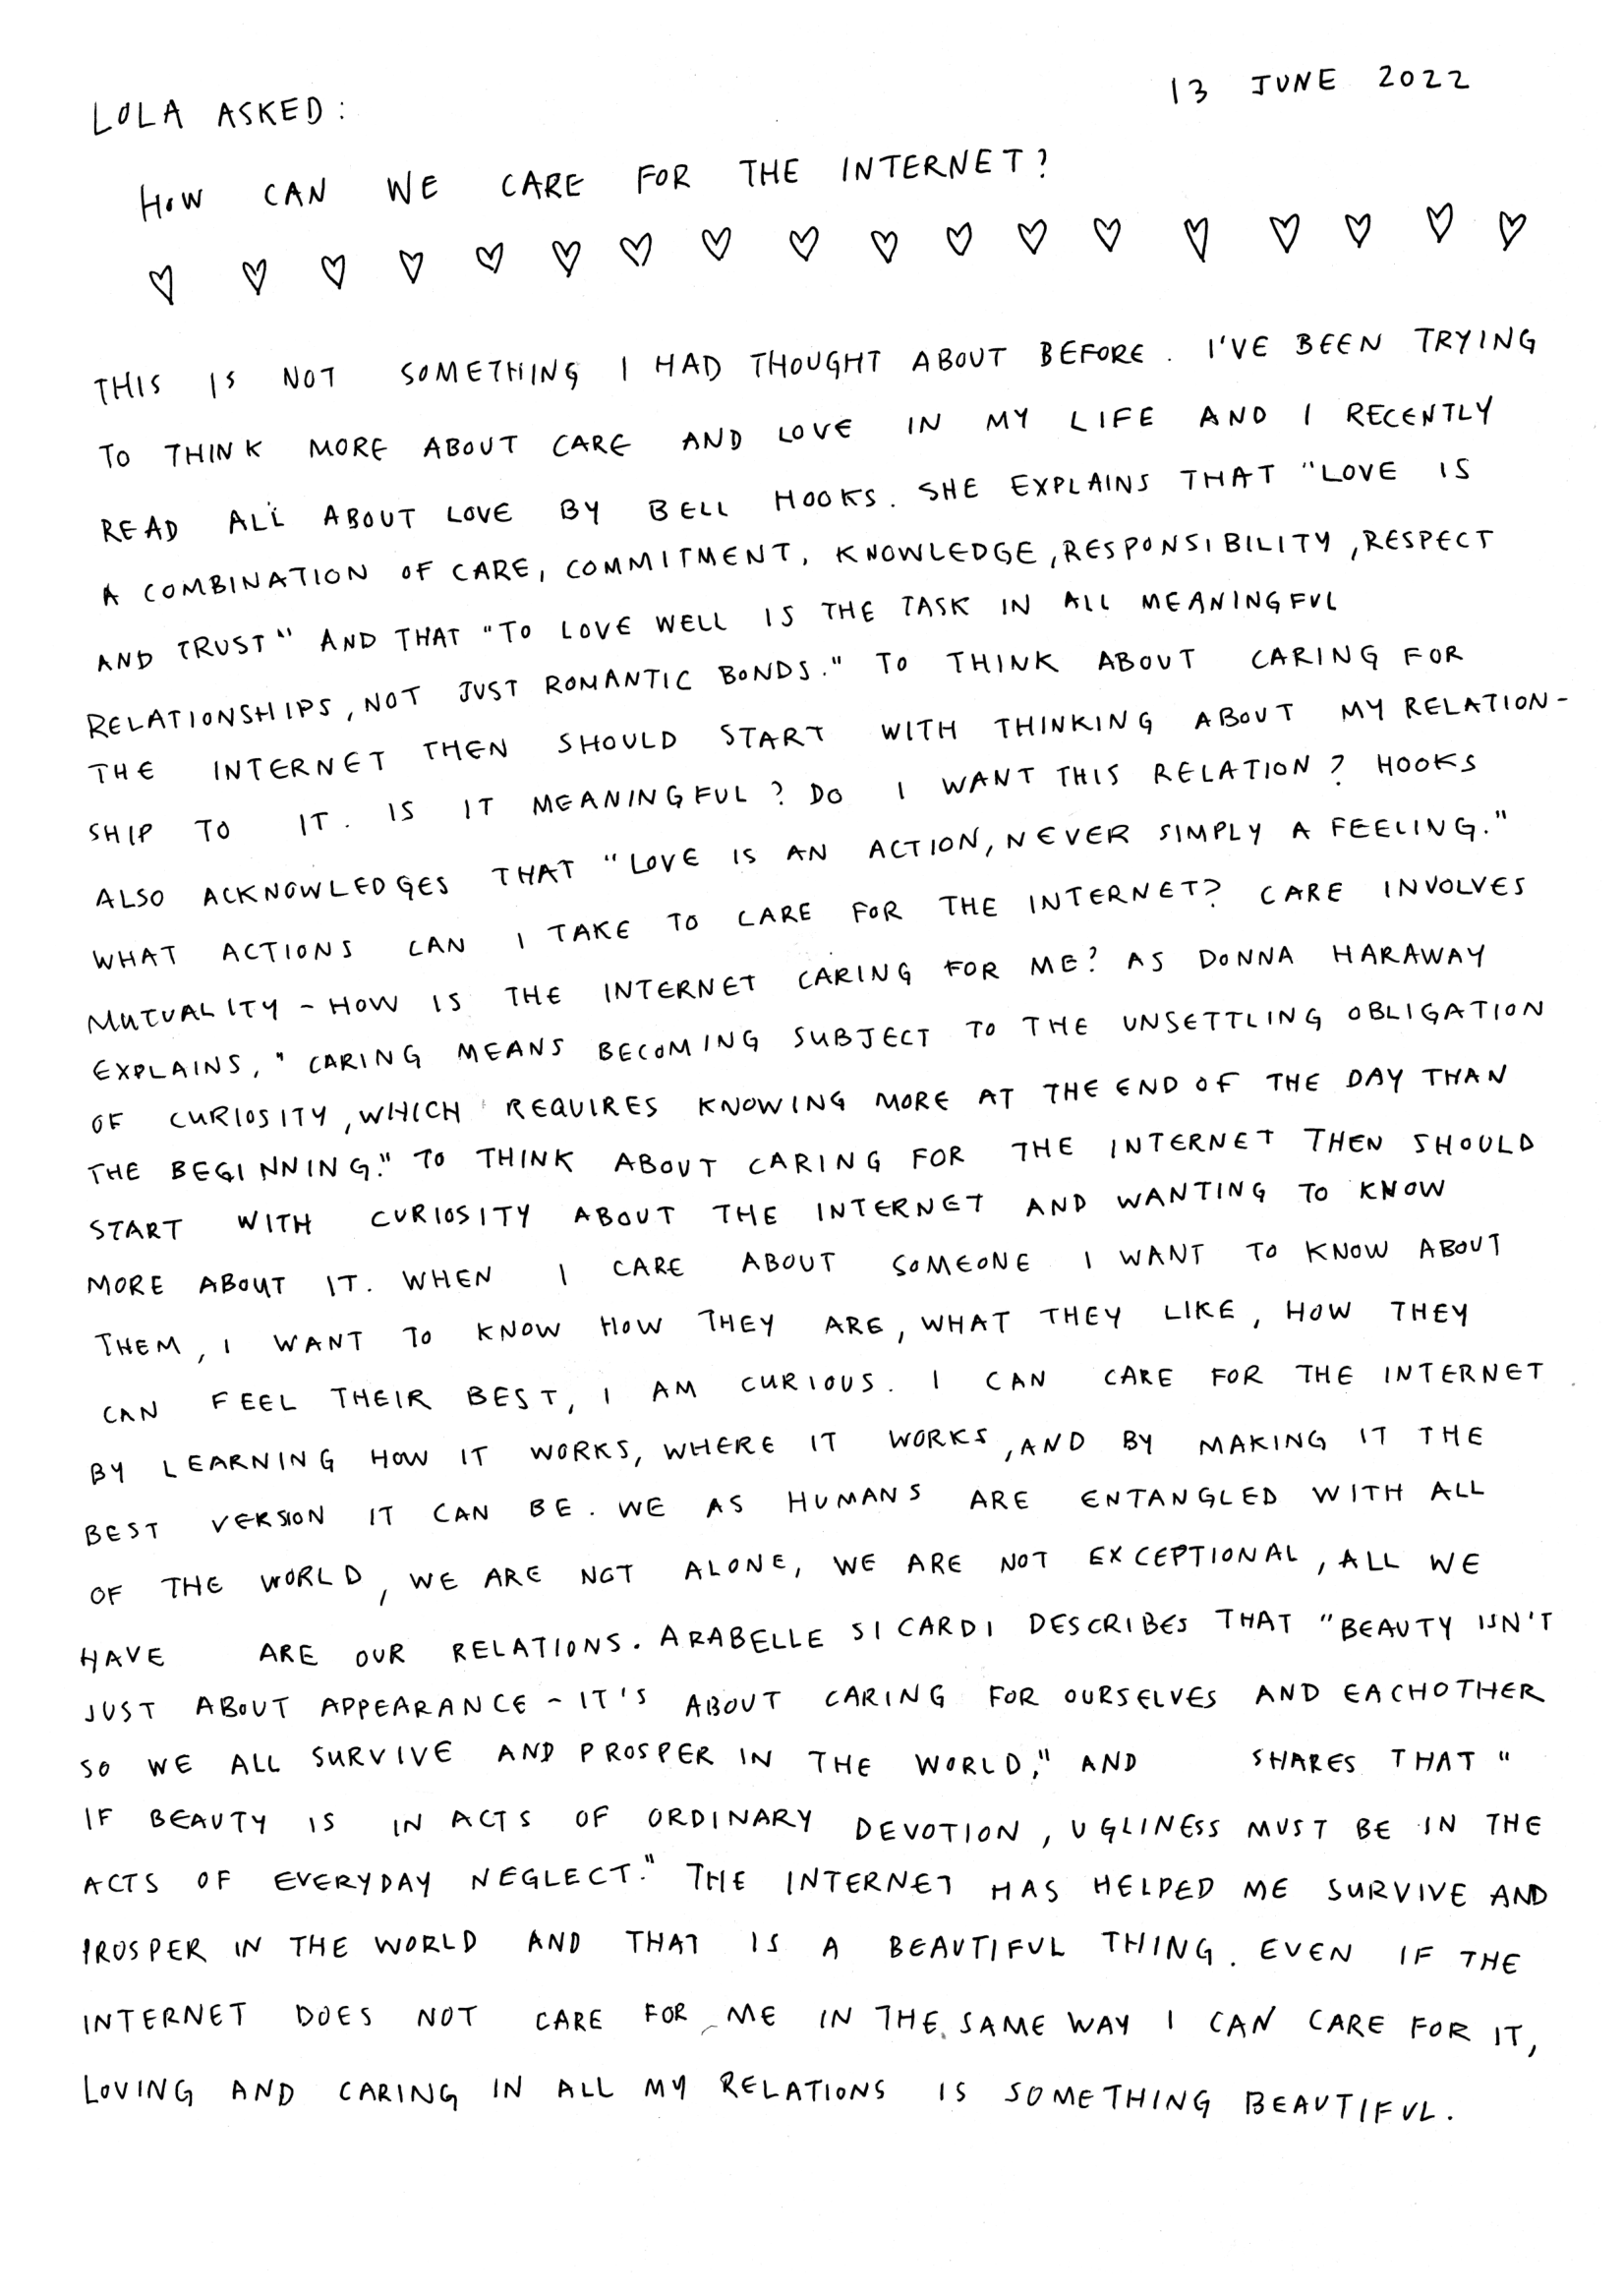 13 JUNE 2022
LOLA ASKED:
HOW CAN WE CARE FOR THE INTERNET?
THIS IS NOT SOMETHING I HAD THOUGHT ABOUT BEFORE. I'VE BEEN TRYING
TO THINK MORE ABOUT CARE AND LOVE IN MY LIFE AND I RECENTLY
READ ALL ABOUT LOVE BY BELL HOOKS. SHE EXPLAINS THAT "LOVE IS
A COMBINATION OF CARE, COMMITMENT, KNOWLEDGE, RESPONSIBILITY, RESPECT
AND TRUST" AND THAT "TO LOVE WELL IS THE TASK IN ALL MEANINGFUL
RELATIONSHIPS, NOT JUST ROMANTIC BONDS." TO THINK ABOUT CARING FOR
THE INTERNET THEN SHOULD START WITH THINKING ABOUT MY RELATION-
SHIP TO IT. IS IT MEANINGFUL? DO I WANT THIS RELATION? HOOKS
ALSO ACKNOWLEDGES THAT "LOVE IS AN ACTION, NEVER SIMPLY A FEELING."
WHAT ACTIONS CAN I TAKE TO CARE FOR THE INTERNET? CARE INVOLVES
MUTUALITY - HOW IS THE INTERNET CARING FOR ME? AS DONNA HARAWAY
EXPLAINS, "CARING MEANS BECOMING SUBJECT TO THE UNSETTLING OBLIGATION
OF CURIOSITY, WHICH REQUIRES KNOWING MORE AT THE END OF THE DAY THAN
THE BEGINNING." TO THINK ABOUT CARING FOR THE INTERNET THEN SHOULD
START WITH CURIOSITY ABOUT THE INTERNET AND WANTING TO KNOW
MORE ABOUT IT. WHEN I CARE ABOUT SOMEONE I WANT TO KNOW ABOUT
THEM, I WANT TO KNOW HOW THEY ARE, WHAT THEY LIKE, HOW THEY
CAN FEEL THEIR BEST, I AM CURIOUS. I CAN CARE FOR THE INTERNET
BY LEARNING HOW IT WORKS, WHERE IT WORKS, AND BY MAKING IT THE
BEST VERSION IT CAN BE. WE AS HUMANS ARE ENTANGLED WITH ALL
OF THE WORLD, WE ARE NOT ALONE, WE ARE NOT EXCEPTIONAL, ALL WE
HAVE ARE OUR RELATIONS. ARABELLE SICARDI DESCRIBES THAT "BEAUTY ISN'T
JUST ABOUT APPEARANCE - IT'S ABOUT CARING FOR OURSELVES AND EACHOTHER
SO WE ALL SURVIVE AND PROSPER IN THE WORLD," AND SHARES THAT "
IF BEAUTY IS IN ACTS OF ORDINARY DEVOTION, UGLINESS MUST BE IN THE
ACTS OF EVERYDAY NEGLECT." THE INTERNET HAS HELPED ME SURVIVE AND
PROSPER IN THE WORLD AND THAT IS A BEAUTIFUL THING. EVEN IF THE
INTERNET DOES NOT CARE FOR ME IN THE SAME WAY I CAN CARE FOR IT,
LOVING AND CARING IN ALL MY RELATIONS IS SOMETHING BEAUTIFUL.